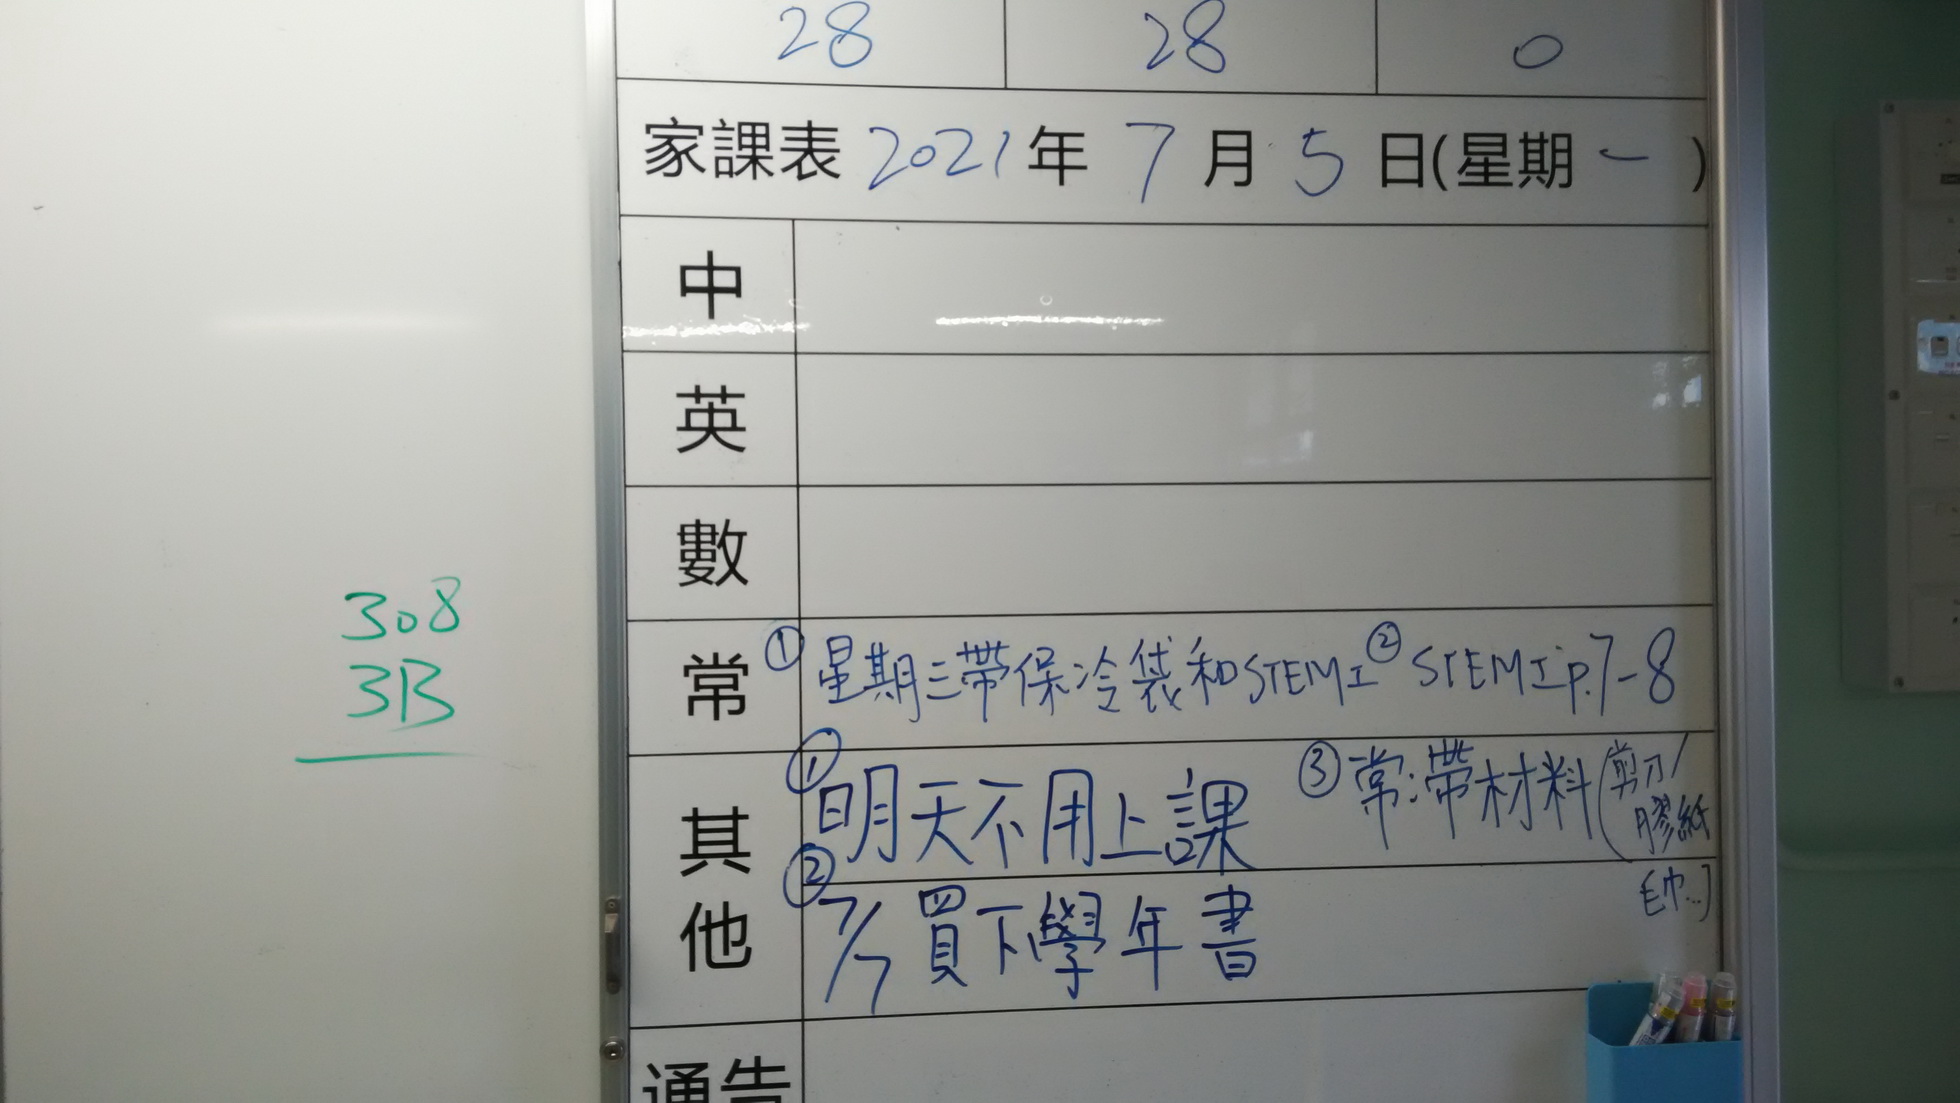 28 28 0
家課表 2021年 7月 5日(星期一)
中
英
數
常 ①星期三帶保冷袋和STEM工 ②STEM工p.7-8
其他
①明天不用上課 ③常:帶材料(剪刀/
膠紙
毛巾...)
②7/7買下學年書
通告
308
3B